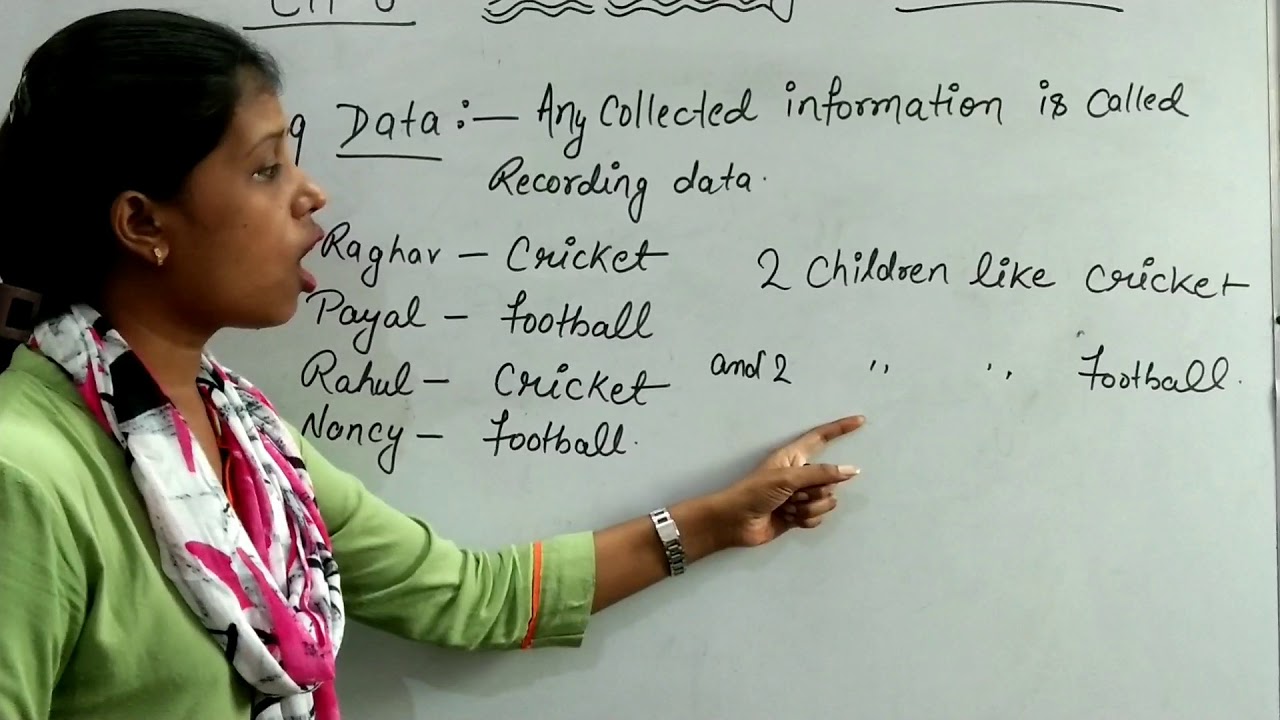 Data :— Any Collected information is Called
Recording data.
Raghav – Cricket
Payal – football
Rahul – Cricket
Nancy – football.
2 Children like cricket
and 2 " " football.